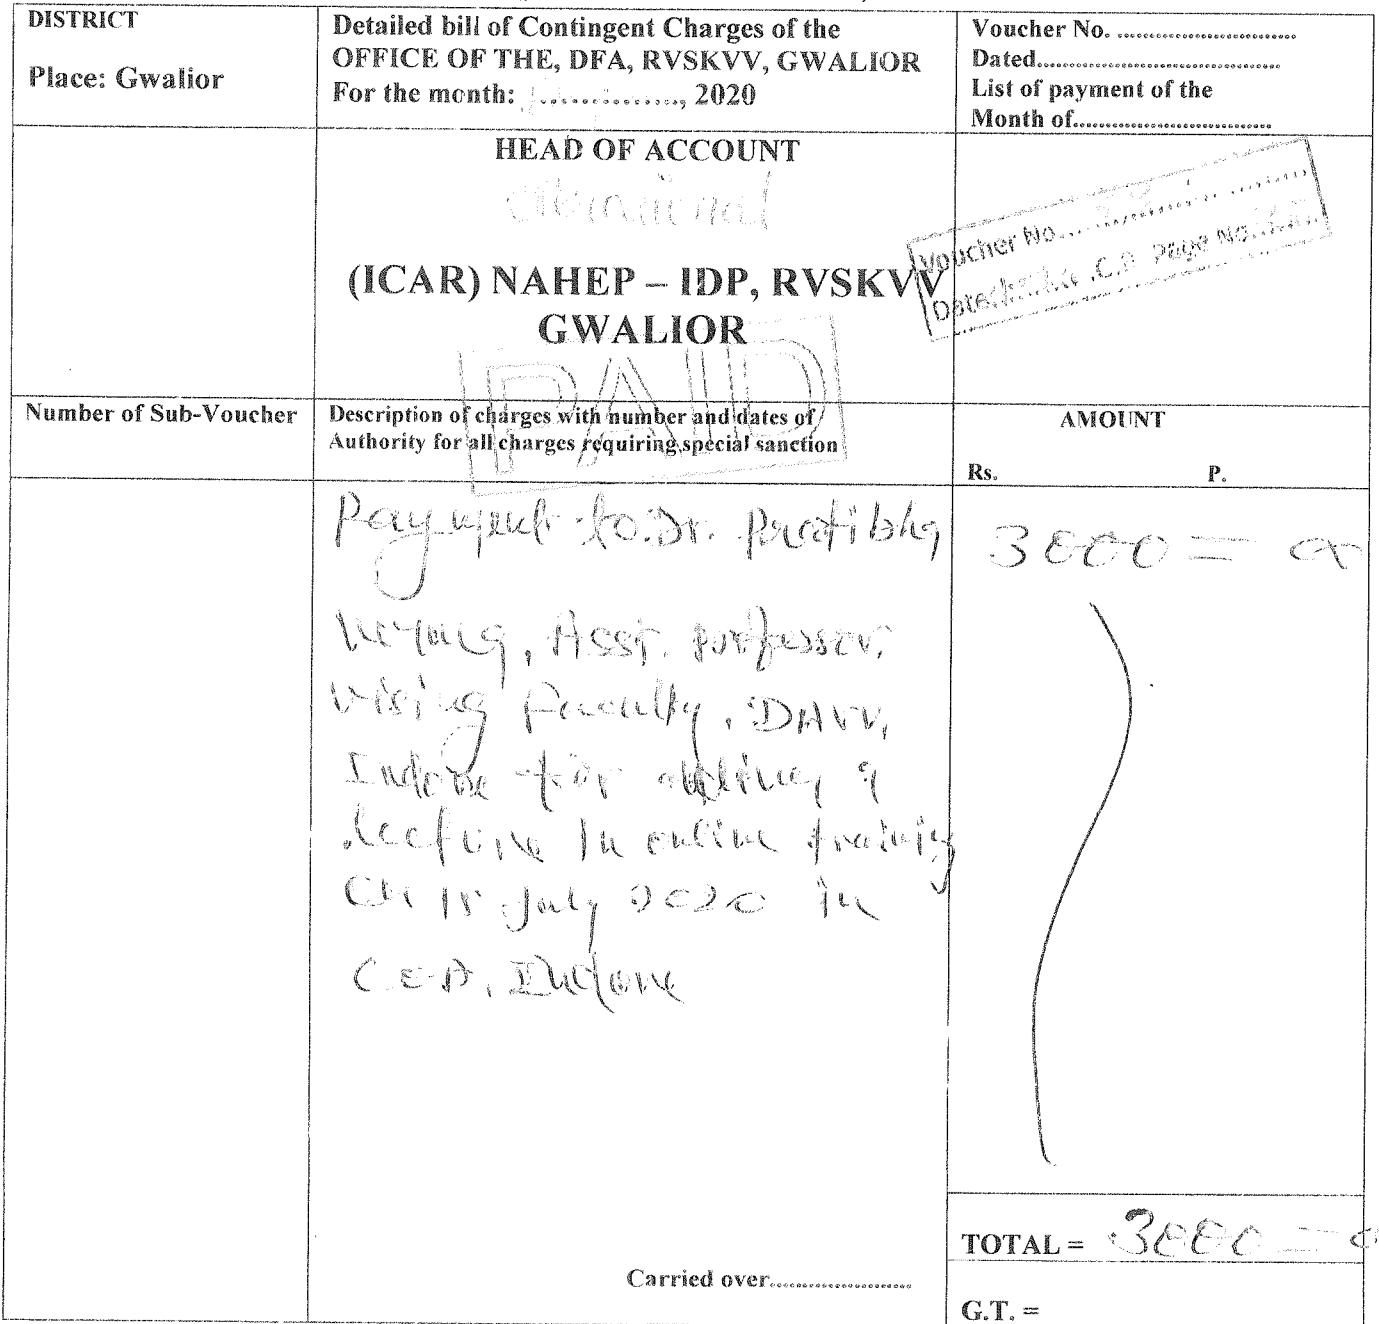 DISTRICT
Place: Gwalior
Detailed bill of Contingent Charges of the
OFFICE OF THE, DFA, RVSKVV, GWALIOR
For the month: ..............., 2020
Voucher No. ............................
Dated.......................................
List of payment of the
Month of................................
HEAD OF ACCOUNT
(ICAR) NAHEP – IDP, RVSKVV
GWALIOR
Voucher No.
Date C.B. Page No.
PAID
Number of Sub-Voucher
Description of charges with number and dates of
Authority for all charges requiring special sanction
AMOUNT
Rs. P.
Payment to Dr. Pratibha
Asst. professor,
Vising Faculty, DAVV,
Indore for
lecture in online training
on 15 July 2020 in
C.E.D, Indore
3000 =
TOTAL = 3000 =
Carried over.......................
G.T. =